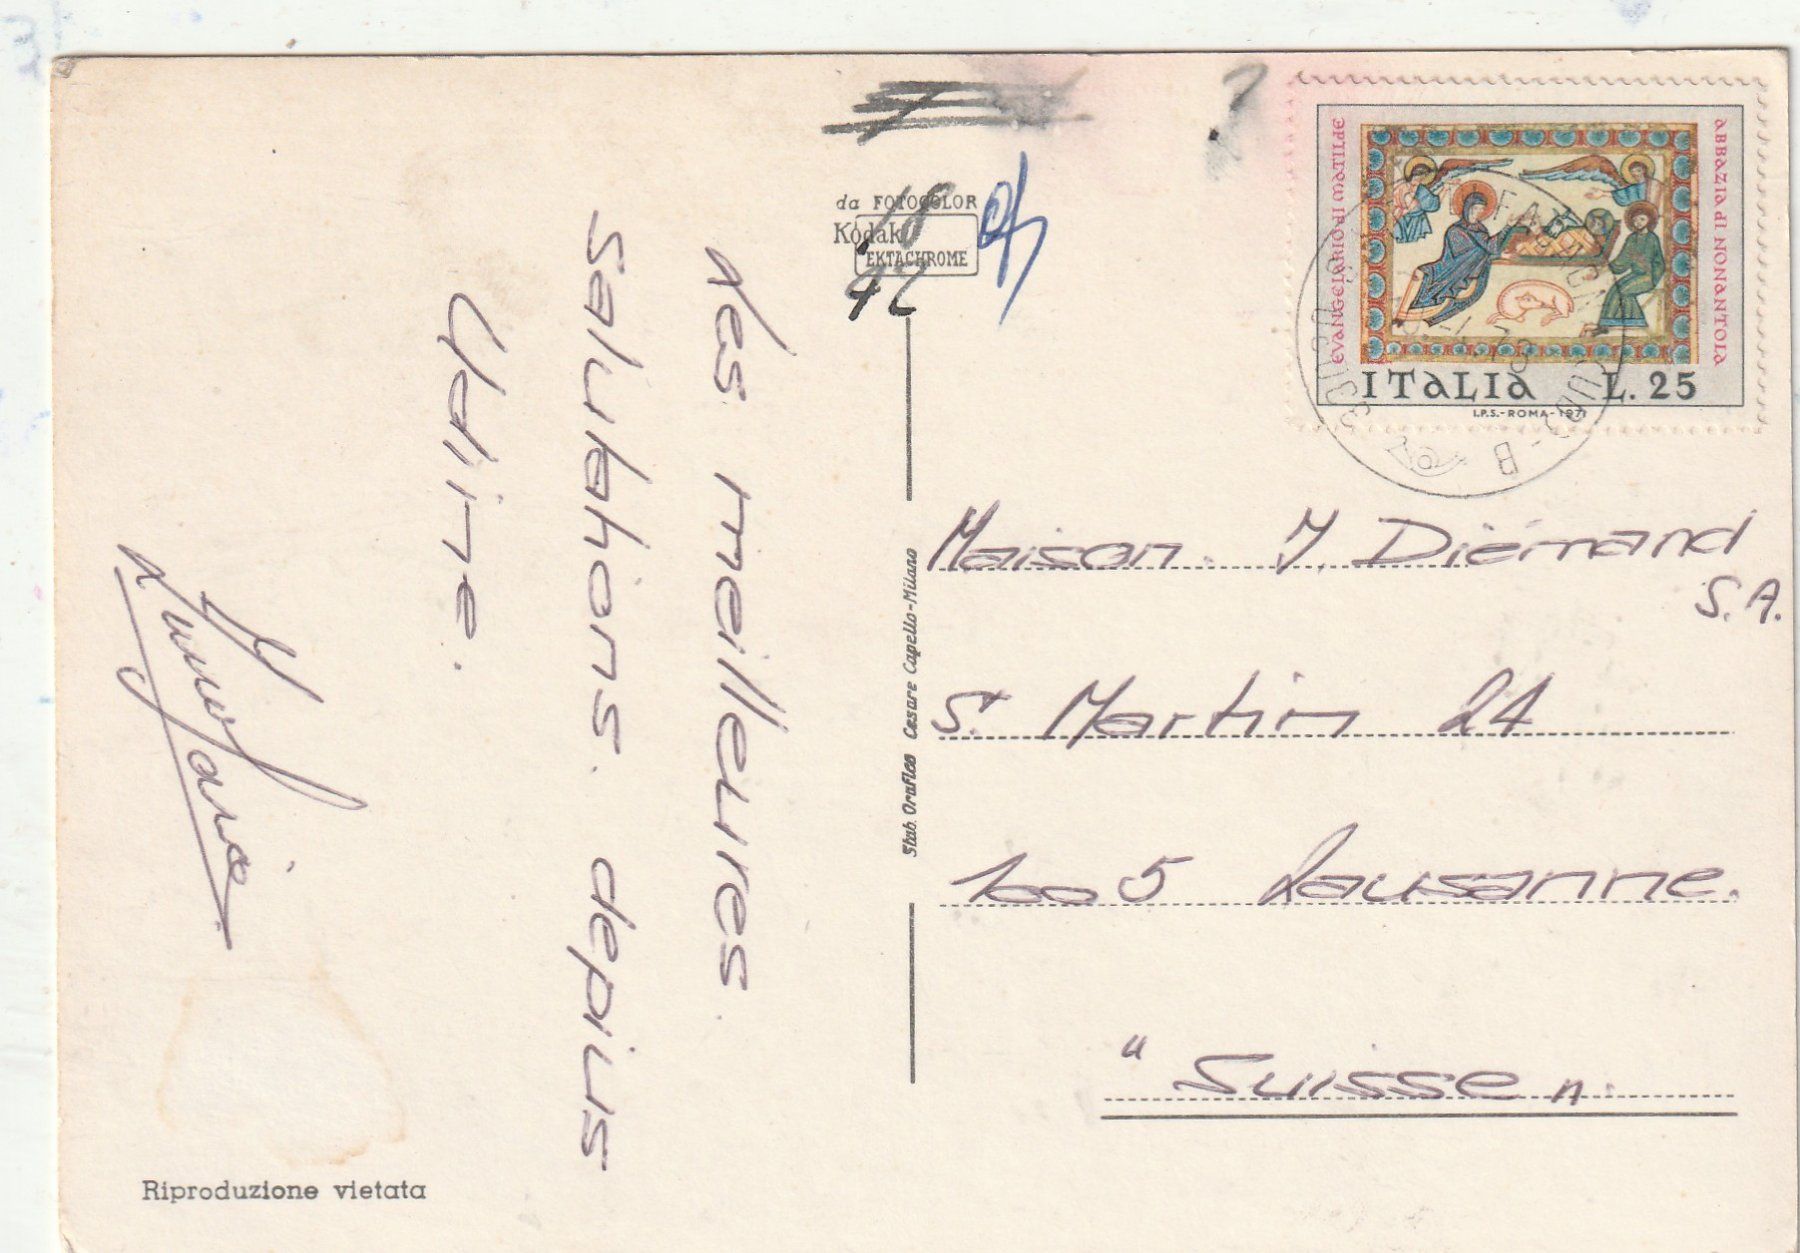 Les meilleures
salutations. depius
Udine.
Riproduzione vietata
da FOTOCOLOR
Kodak
EKTACHROME
18
42
?
Stab. Grafico Cesare Capello-Milano
EVANGELIARIO di MATILDE
ABBAZIA di NONANTOLA
ITALIA L. 25
I.P.S.-ROMA-1971
B
Maison. J. Diémand
S.A.
St Martin 24
1005 Lausanne.
"Suisse".